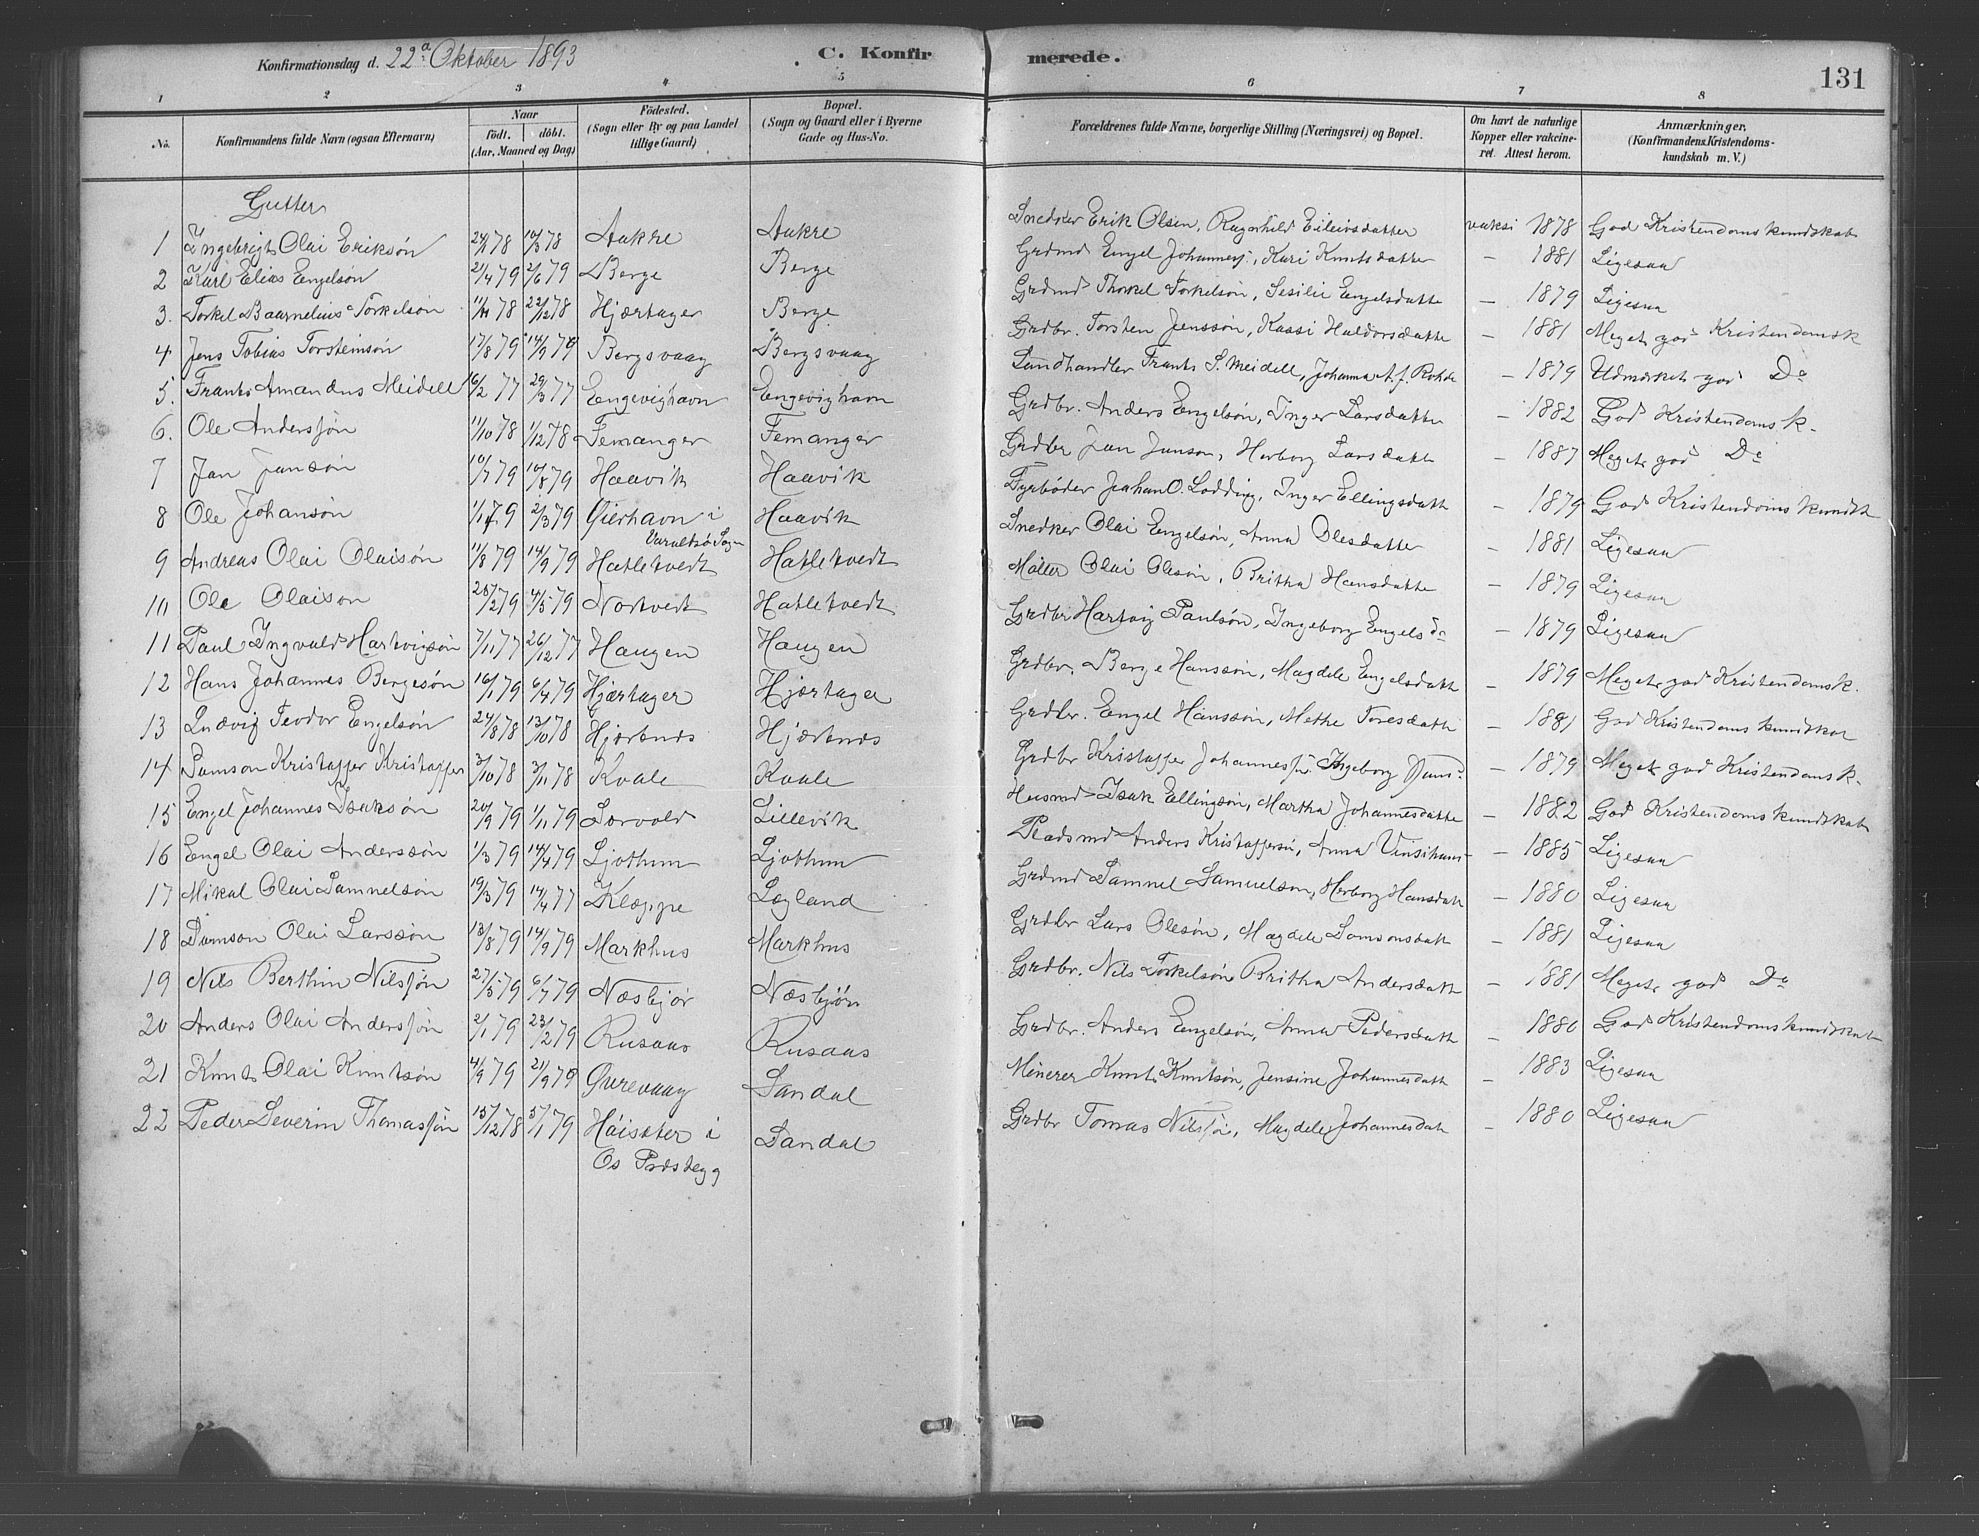 Konfirmationsdag d. 22de Oktober 1893 C. Konfirmerede. 131
1 2 3 4 5 6 7 8
No. Konfirmandens fulde Navn (ogsaa Efternavn) Naar födt. döbt. (Aar, Maaned og Dag) Födested. (Sogn eller By og paa Landet tillige Gaard) Bopæl. (Sogn og Gaard eller i Byerne Gade og Hus-No. Forældrenes fulde Navne, borgerlige Stilling (Næringsvei) og Bopæl. Om havt de naturlige Kopper eller vakcineret. Attest herom. Anmærkninger. (Konfirmandens Kristendomskundskab m. V.)
Gutter
1 Ingebrigt Olai Eriksøn 24/1 78 10/3 78 Aakre Aakre Snedker Erik Olsen, Ragnhild Eilivsdatter vaksi 1878 God Kristendomskundskab
2 Karl Elias Engelsøn 21/4 79 2/6 79 Berge Berge Grdmd Engel Johannesj., Kari Knutsdatter – 1881 Ligesaa
3. Torkel Baarnelius Torkelsøn 11/11 78 22/12 78 Hjærtager Berge Grdmd Thorkel Torkelsøn, Sesilie Engelsdatte – 1879 Ligesaa
4 Jens Tobias Torsteinsøn 17/8 79 14/9 79 Bergsvaag Bergsvaag Grdbr. Torsten Jenssøn, Kaasi Haldorsdatte – 1881 Meget god Kristendomsk
5. Frants Amandus Meidell 16/2 77 29/3 77 Engevighavn Engevighavn Landhandler Frants S. Meidell, Johanna A. f. Rohde – 1879 Udmærket god Do
6. Ole Andersjøn 11/10 78 1/12 78 Femanger Femanger Grdbr. Anders Engelsøn, Inger Larsdatte – 1882 God Kristendomsk.
7 Jan Jansøn 10/7 79 10/8 79 Haavik Haavik Grdbr Jan Janson, Herborg Larsdatte – 1887 Meget god Do
8 Ole Johansøn 1/1 79 2/3 79 Gierhavn i Varaltsø Sogn Haavik Fyrbøder Johan O. Lodding, Inger Ellingsdatt – 1879 God Kristendomskundsk
9 Andreas Olai Olaisøn 11/8 79 14/9 79 Hatletvedt Hatletvedt Snedker Olai Engelsøn, Anna Olesdatter – 1881 Ligesaa
10 Ole Olaison 28/2 79 4/5 79 Nortvedt Hatletvedt Møller Olai Olesøn, Britha Hansdatte – 1879 Ligesaa
11 Paul Ingvald Hartvigsøn 7/11 77 26/12 77 Haugen Haugen Grdbr Hartvig Paulsøn, Ingeborg Engelsd – 1879 Ligesaa
12 Hans Johannes Bergesøn 16/1 79 6/4 79 Hjærtager Hjærtager Grdbr. Berge Hanssøn, Magdele Engelsdatt – 1879 Meget god Kristendomsk.
13 Ludvig Teodor Engelsøn 24/8 78 13/10 78 Hjørtnes Hjørtnes Grdbr. Engel Hanssøn, Methe Toresdatte – 1881 God Kristendomskundskab
14 Samson Kristaffer Kristaffers 3/10 78 3/11 78 Kvale Kvale Grdbr Kristaffer Johannessø. Ingeborg – 1879 Meget god Kristendomsk.
15 Engel Johannes Isaksøn 20/9 79 1/11 79 Sørvold Lillevik Husmd Isak Ellingsøn, Martha Johannesdatte – 1882 God Kristendomskundskab
16 Engel Olai Anderssøn 1/3 79 14/4 79 Ljothum Ljothum Pladsmd Anders Kristaffersø, Anna – 1885 Ligesaa
17 Mikal Olai Samuelsøn 19/3 79 14/4 77 Kleppe Legland Grdmd Samuel Samuelson, Herborg Hansdatt – 1880 Ligesaa
18 Samson Olai Larssøn 13/8 79 14/9 79 Markhus Markhus Grdbr Lars Olesøn, Magdele Samsonsdatt – 1881 Ligesaa
19 Nils Berthin Nilsjøn 27/5 79 6/7 79 Næsbjør Næsbjørn Grdbr. Nils Torkelsøn Britha Andersdatt – 1881 Meget god Do
20 Anders Olai Andersjøn 2/1 79 23/2 79 Rusaas Rusaas Grdbr. Anders Engelsøn, Anna Pedersdatt – 1880 God Kristendomskundskab
21 Knut Olai Knutsøn 4/9 79 21/9 79 Øvrevaag Sandal Minerer Knut Knutsøn, Jensine Johannesdatt – 1883 Ligesaa
22 Peder Severin Thomasjøn 15/12 78 5/1 79 Haisæter i Os Præstegg Sandal Grdbr Tomas Nilsjø, Magdele Johannesdatt – 1880 Ligesaa